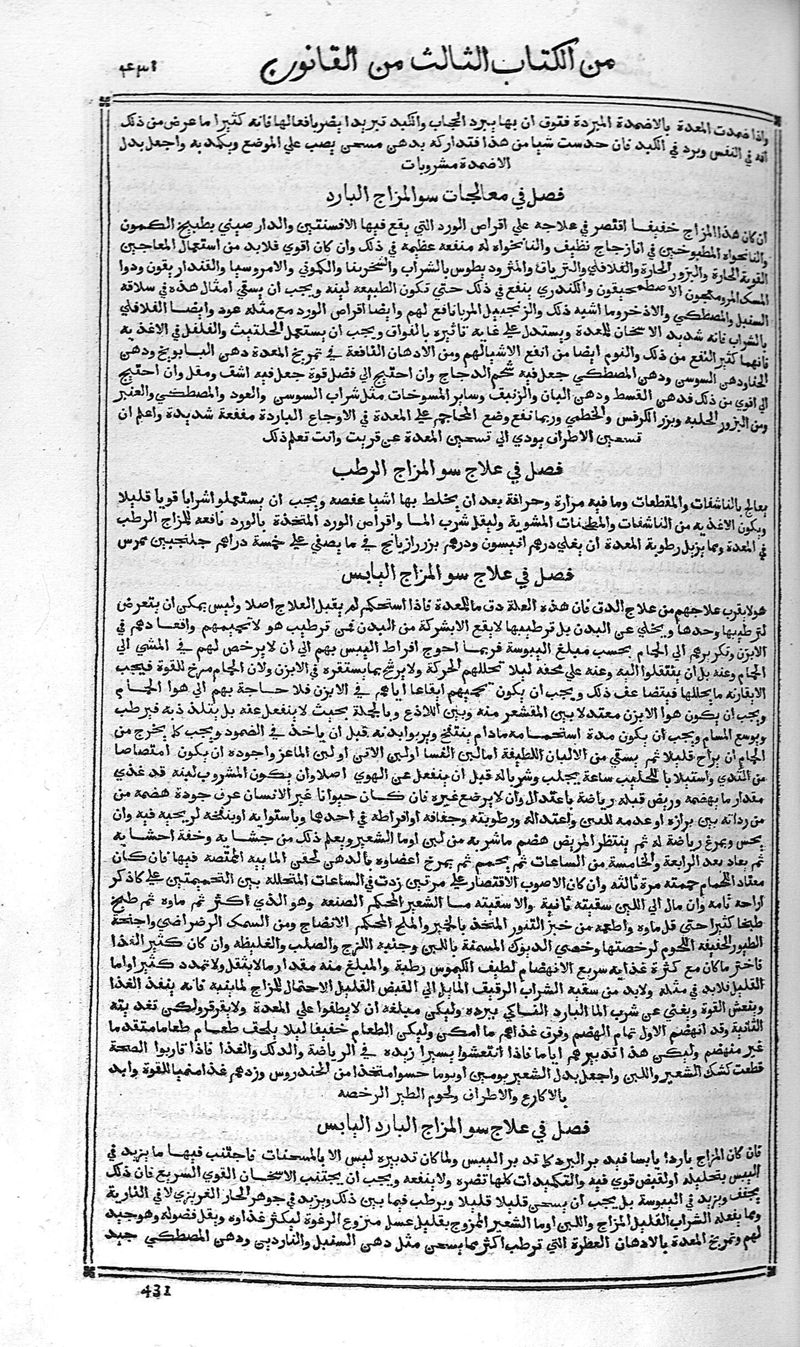 من الكتاب الثالث من القانون
٤٣١
واذا ضمدت المعدة بالاضمدة المبردة فتوق ان بها يبرد الحجاب والكبد تبريدا يضر بافعالها فانه كثيرا ما عرض من ذلك
افه في النفس وبرد في الكبد فان حدست شيا من هذا فتداركه بدهن مسخن يصب علي الموضع ويكمد به واجعل بدل
الاضمدة مشروبات
فصل في معالجات سو المزاج البارد
ان كان هذا المزاج خفيفا اقتصر في علاجه علي اقراص الورد التي يقع فيها الافسنتين والدارصيني بطبيخ الكمون
والنانخواه المطبوخين في انا زجاج نظيف والنانخواه له منفعه عظيمه في ذلك وان كان اقوي فلابد من استعمال المعاجين
القوية الحارة والبزور الحارة والفلافلي والترياق والمثروديطوس بالشراب والشجرينا والكموني والامروسيا والفنداريقون ودوا
المسك المر ومعجون الاصطمحيقون والكندري ينفع في ذلك حتي تكون الطبيعه لينه ويجب ان يسقي امثال هذه في سلاقه
السنبل والمصطكي والاذخر وما اشبه ذلك والزنجبيل المربا نافع لهم وايضا اقراص الورد مع مثله عود وايضا الفلافلي
بالشراب فانه شديد الاسخان للمعدة ويستدل علي غاية تاثيره بالفواق ويجب ان يستعمل الحلتيث والفلفل في الاغذيه
فانهما كثير النفع من ذلك والثوم ايضا من انفع الاشيا لهم ومن الادهان النافعة في تمريخ المعدة دهن البابونج ودهن
الحنا ودهن السوسن ودهن المصطكي جعل فيه شحم الدجاج وان احتيج الي فضل قوة جعل فيه اشق ومقل وان احتيج
الي اقوي من ذلك فدهن القسط ودهن البان والزنبق وساير المسوخات مثل شراب السوسن والعود والمصطكي والعنبر
ومن البزور الحلبة وبزر الكرفس والخطمي وربما نفع وضع المحاجم علي المعدة في الاوجاع الباردة منفعة شديدة واعلم ان
تسخين الاطراف يودي الي تسخين المعدة عن قريب وانت تعلم ذلك
فصل في علاج سو المزاج الرطب
يعالج بالناشفات والمقطعات وما فيه مرارة وحرافة بعد ان يخلط بها اشيا عفصه ويجب ان يستعملوا شرابا قويا قليلا
ويكون الاغذيه من الناشفات والمطجنات المشوية وليقل شرب الما واقراص الورد المتخذة بالورد نافعه للمزاج الرطب
في المعدة ومما يزيل رطوبة المعدة ان يغلي درهم انيسون ودرهم بزر رازيانج في ما يصفي علي خمسة دراهم جلنجبين بمرس
فصل في علاج سو المزاج اليابس
هولا يقرب علاجهم من علاج الدق فان هذه العلة دق ما للمعدة فاذا استحكم لم يقبل العلاج اصلا وليس يمكن ان يتعرض
لترطيبها وحدها ويخلي عن البدن بل ترطيبها لا يقع الا بشركة من البدن فمن ترطيب هولا تحميمهم وافعا دهم في
الابزن وتكريرهم الي الحمام بحسب مبلغ اليبوسة فربما احوج افراط اليبس بهم الي ان لا يرخص لهم في المشي الي
الحمام وعنه بل ان ينتقلوا اليه وعنه علي محفه ليلا تحللهم الحركة ولا يرشح بما يستقره في الابزن ولان الحمام مرخ للقوة فيجب
ويجب ان يكون هوا الابزن معتدلا بين المقشعر منه وبين اللاذع وبالجملة بحيث لا ينفعل عنه بل يتلذذ به فيرطب
ويوسع المسام ويجب ان يكون مدة استحمامه ما دام ينتفخ ويربو بدنه قبل ان ياخذ في الضمور ويجب كما يخرج من
الحمام ان يراح قليلا ثم يسقي من الالبان اللطيفة اما لبن النسا او لبن الاتن او لبن الماعز واجوده ان يكون امتصاصا
من الثدي
مقدار ما يهضمه وريض قبله رياضة باعتدال وان لا يرضع غيره فان كان حيوانا غير الانسان عرف جودة هضمه من
من رداته بين برازه او عدمه للنتن واعتداله ورطوبته وجفافه او افراطه في احدهما
معتاد الحمام حممته مرة ثالثه وان كان الاصوب الاقتصار علي مرتين زدت في الساعات المتخللة بين التحميمتين علي ما ذكر
اراحه تامه وان مال الي اللبن سقيته ثانية والا سقيته ما الشعير المحكم الصنعه وهو الذي اكثر ثم ماوه ثم طبخ
طبخا كثيرا حتي قل ماوه واطعمه من خبز التنور المتخذ بالخمير والملح المحكم الانضاج ومن السمك الرضراضي واجنحة
الطيور الخفيفه اللحوم لرخصتها وخصي الديوك المسمنة باللبن وجنبه اللزج والصلب والغليظه وان كان كثير الغذا
فاختر ما كان مع كثرة غذايه سريع الانهضام لطيف الكيموس رطبة والمبلغ منه مقدار ما لا يثقل ولا يمدد كثيرا واما
القليل فلابد في مثله ولابد من سقيه الشراب الرقيق المايل الي القبض القليل الاحتمال للمزاج لماييه فانه ينفذ الغذا
وينعش القوة ويغني عن شرب الما البارد الناكي ببرده وليكن مبلغه ان لا يطفوا علي المعدة ولا يقرقر ولكن تغديته
الثانية وقد انهضم الاول تمام الهضم وفرق غذاهم ما امكن وليكن الطعام خفيفا ليلا يلحق طعام طعاما متقدما
غير منهضم وليكن هذا تدبيرهم اياما فاذا انتعشوا يسيرا زيده في الرياضة والدلك والغذا فاذا قاربوا الصحة
قطعت كشك الشعير واللبن واجعل بدل الشعير يومين او يوما حسوا متخذا من الخندروس وزدهم غذا منميا للقوة وابد
بالاكارع والاطراف ولحوم الطير الرخصه
فصل في علاج سو المزاج البارد اليابس
فان كان المزاج باردا يابسا فيدبر البرد كما تدبر اليبس ولما كان تدبيره ليس الا بالمسخنات فاجتنب فيها ما يزيد في
اليبس بتحليله او لقبض قوي فيه والتكميدات كلها تضره ولا ينفعه ويجب ان يجتنب الاسخان القوي السريع فان ذلك
يجفف ويزيد في اليبوسة بل يجب ان يسخن قليلا قليلا ويرطب فيما بين ذلك ويزيد في جوهر الحار الغريزي لا في النارية
ومما يفعله الشراب القليل المزاج واللبن اوما الشعير الممزوج بقليل عسل منزوع الرغوة ليكثر غذاوه ويقل فضوله وهو جيد
لهم وتمريخ المعدة بالادهان العطرة التي ترطب اكثر مما يسخن مثل دهن السنبل والناردين ودهن المصطكي جيد
431